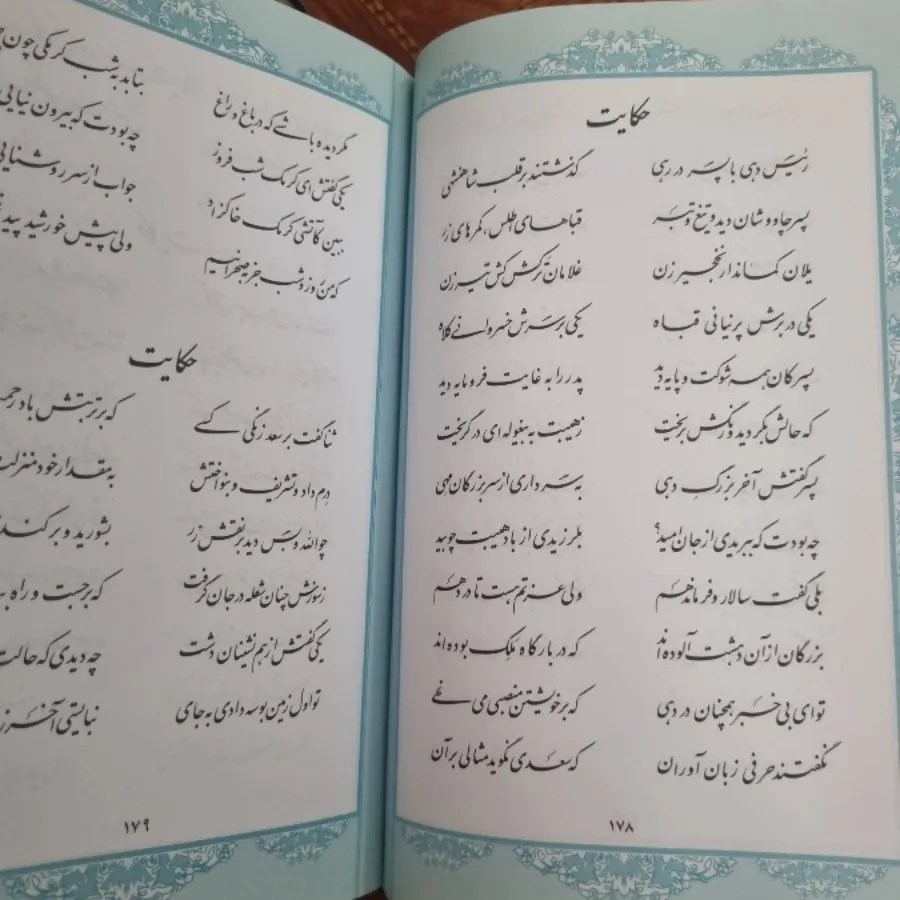 حکایت
رئیس دهی با پسر در رهی گذشتند بر قلب شاهنشهی
پسر چاوشان دید و تیغ و تبر قباهای اطلس، کمرهای زر
یلان کماندار نخجیر زن غلامان ترکش کش تیر زن
یکی در برش پرنیانی قباه یکی بر سرش خسروانی کلاه
پسر کان همه شوکت و پایه دید پدر را به غایت فرومایه دید
که حالش بگردید و رنگش بریخت ز هیبت به پیغوله ای در گریخت
پسر گفتش آخر بزرگ دهی به سرداری از سر بزرگان مهی
چه بودت که ببریدی از جان امید؟ بلرزیدی از باد هیبت چو بید
بلی گفت سالار و فرماندهم ولی عزتم هست تا در دهم
بزرگان از آن دهشت آلوده اند که در بارگاه ملک بوده اند
تو ای بی خبر همچنان در دهی که بر خویشتن منصبی می نهی
نگفتند حرفی زبان آوران که سعدی نگوید مثالی بر آن
۱۷۸
مگر دیده باشی که در باغ و راغ بتابد به شب کرمکی چون
یکی گفتش ای کرمک شب فروز چه بودت که بیرون نیایی
ببین کآتشی کرمک خاکزاد جواب از سر روشنایی
که من روز و شب جز به صحرا نیم ولی پیش خورشید
حکایت
ثنا گفت بر سعد زنگی کسی که بر تربتش باد
درم داد و تشریف و بنواختش به مقدار خود منزلت
چو الله و بس دید بر نقش زر بشورید و برکند
ز سوزش چنان شعله در جان گرفت که برجست و راه
یکی گفتش از همنشینان دشت چه دیدی که حالت
تو اول زمین بوسه دادی به جای نبایستی آخر
۱۷۹